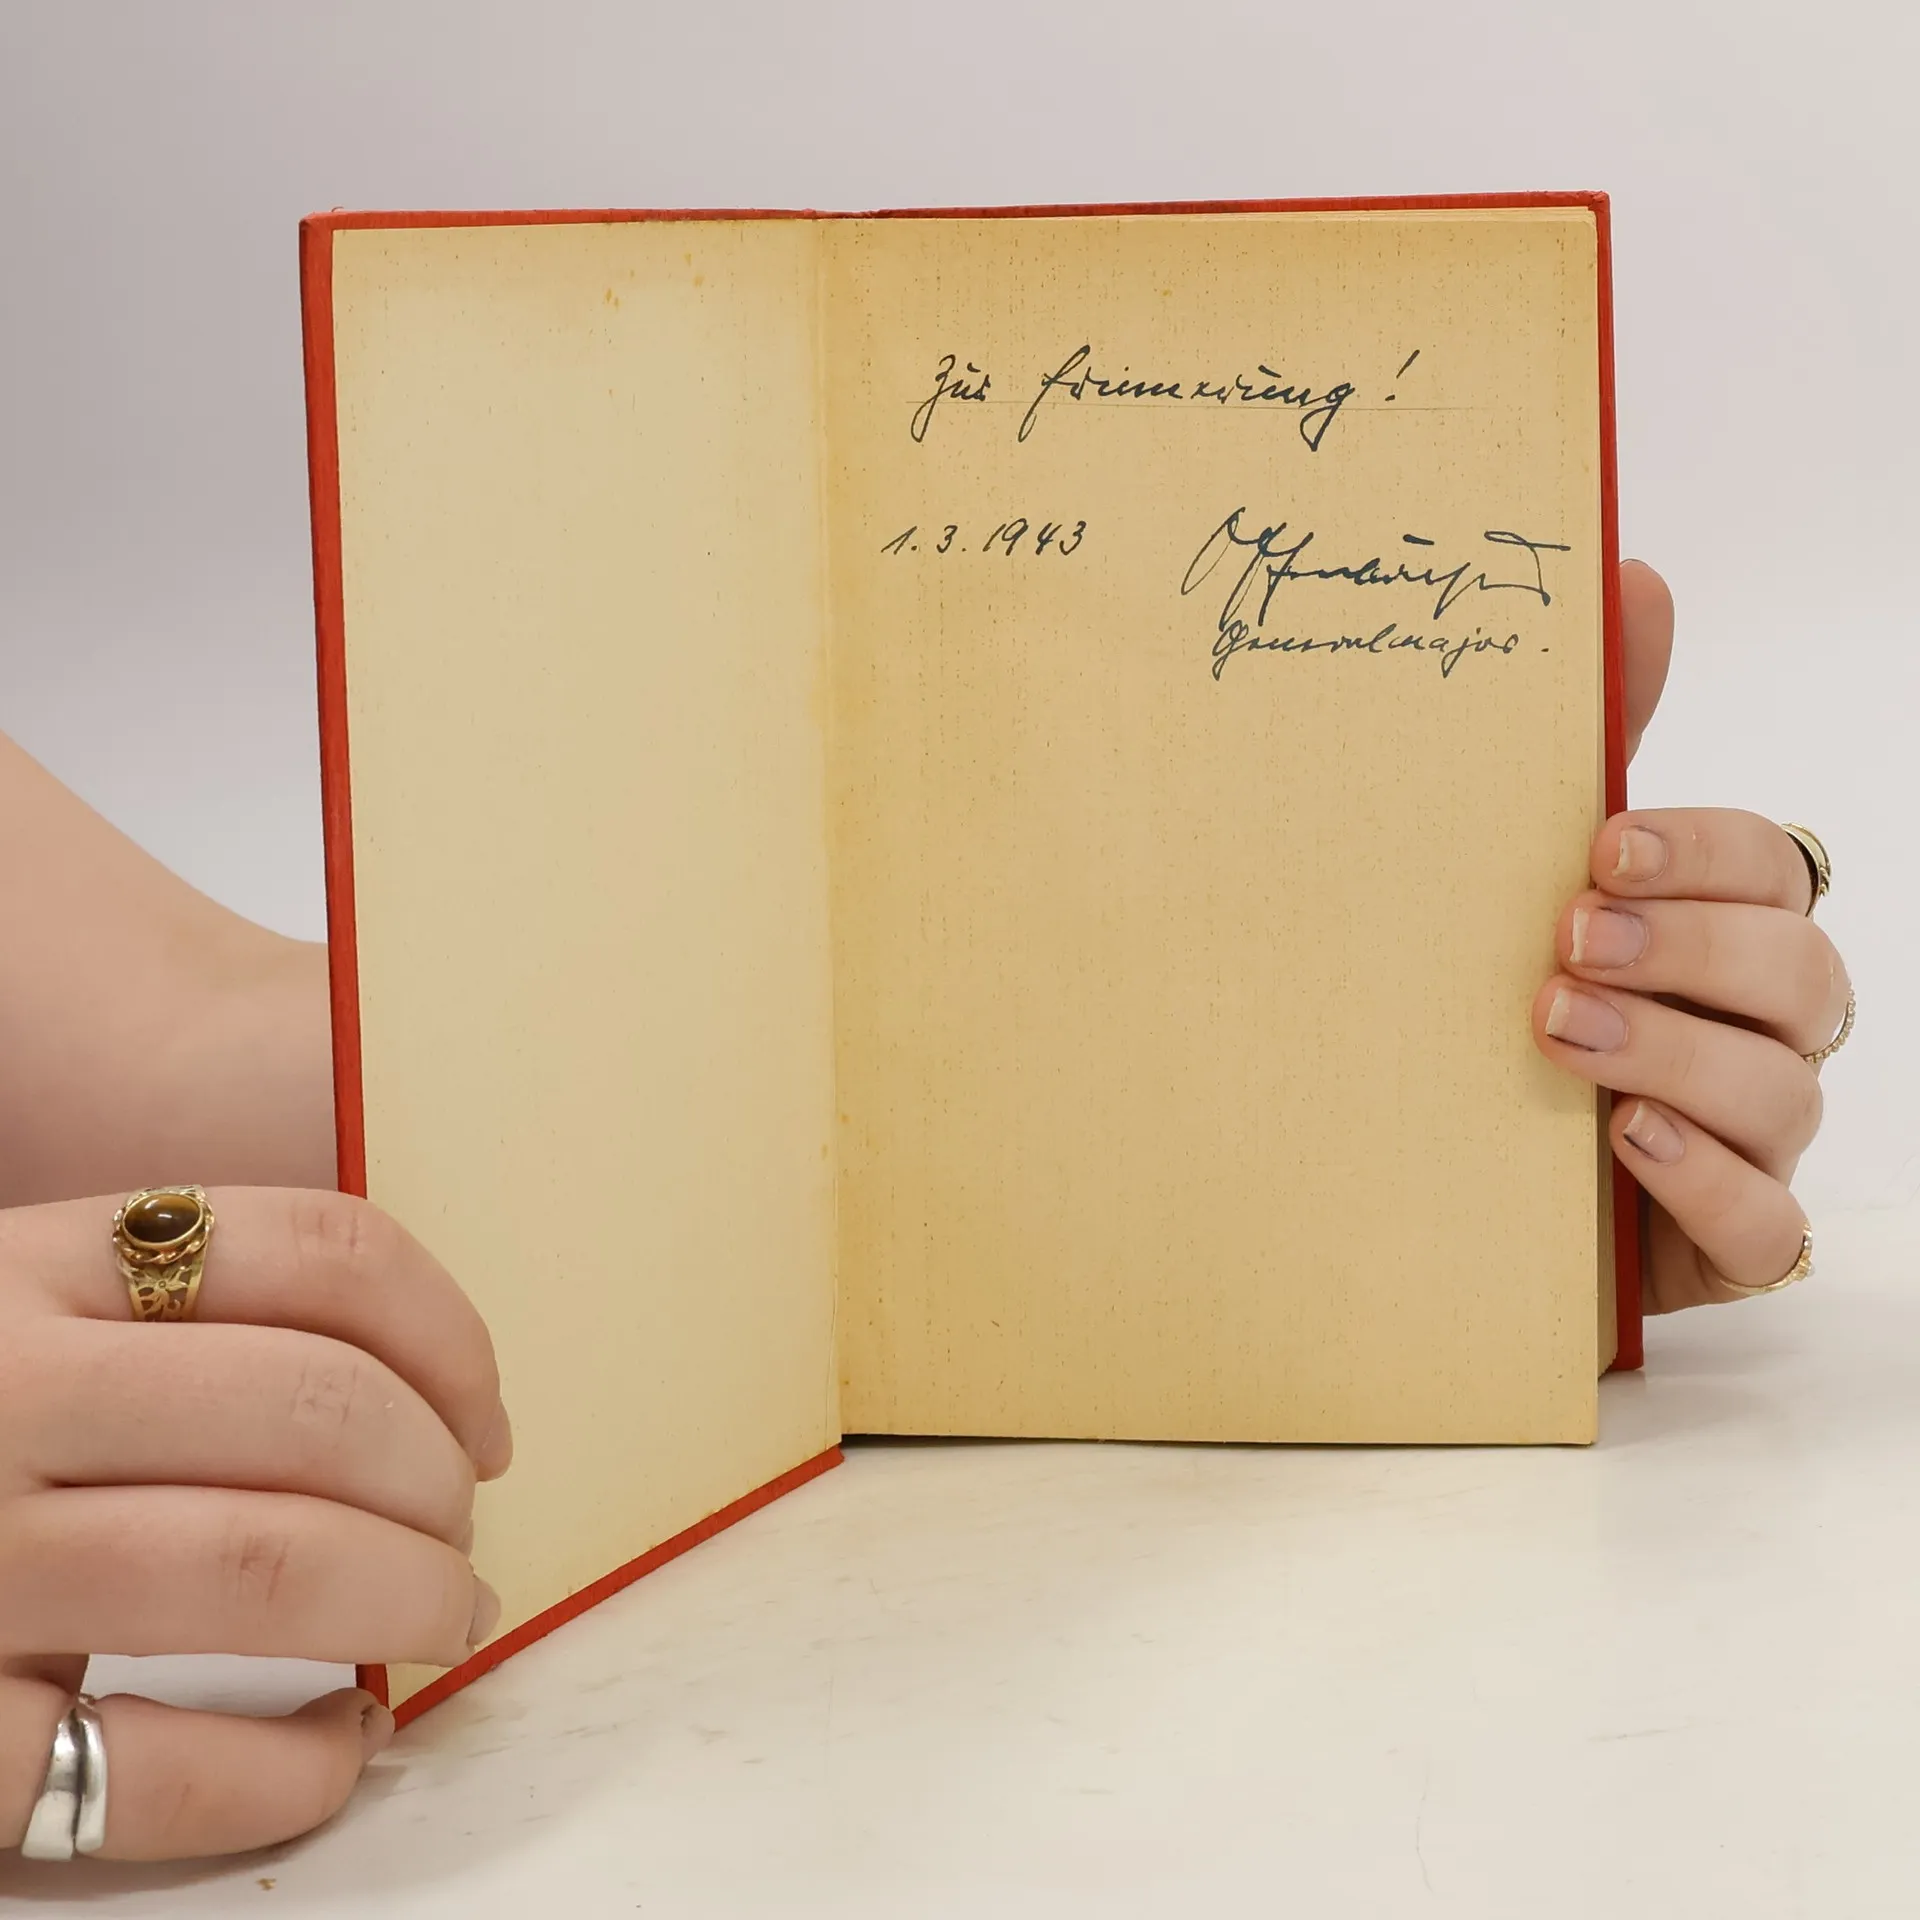 Zur Erinnerung!
1.3.1943
Generalmajor.